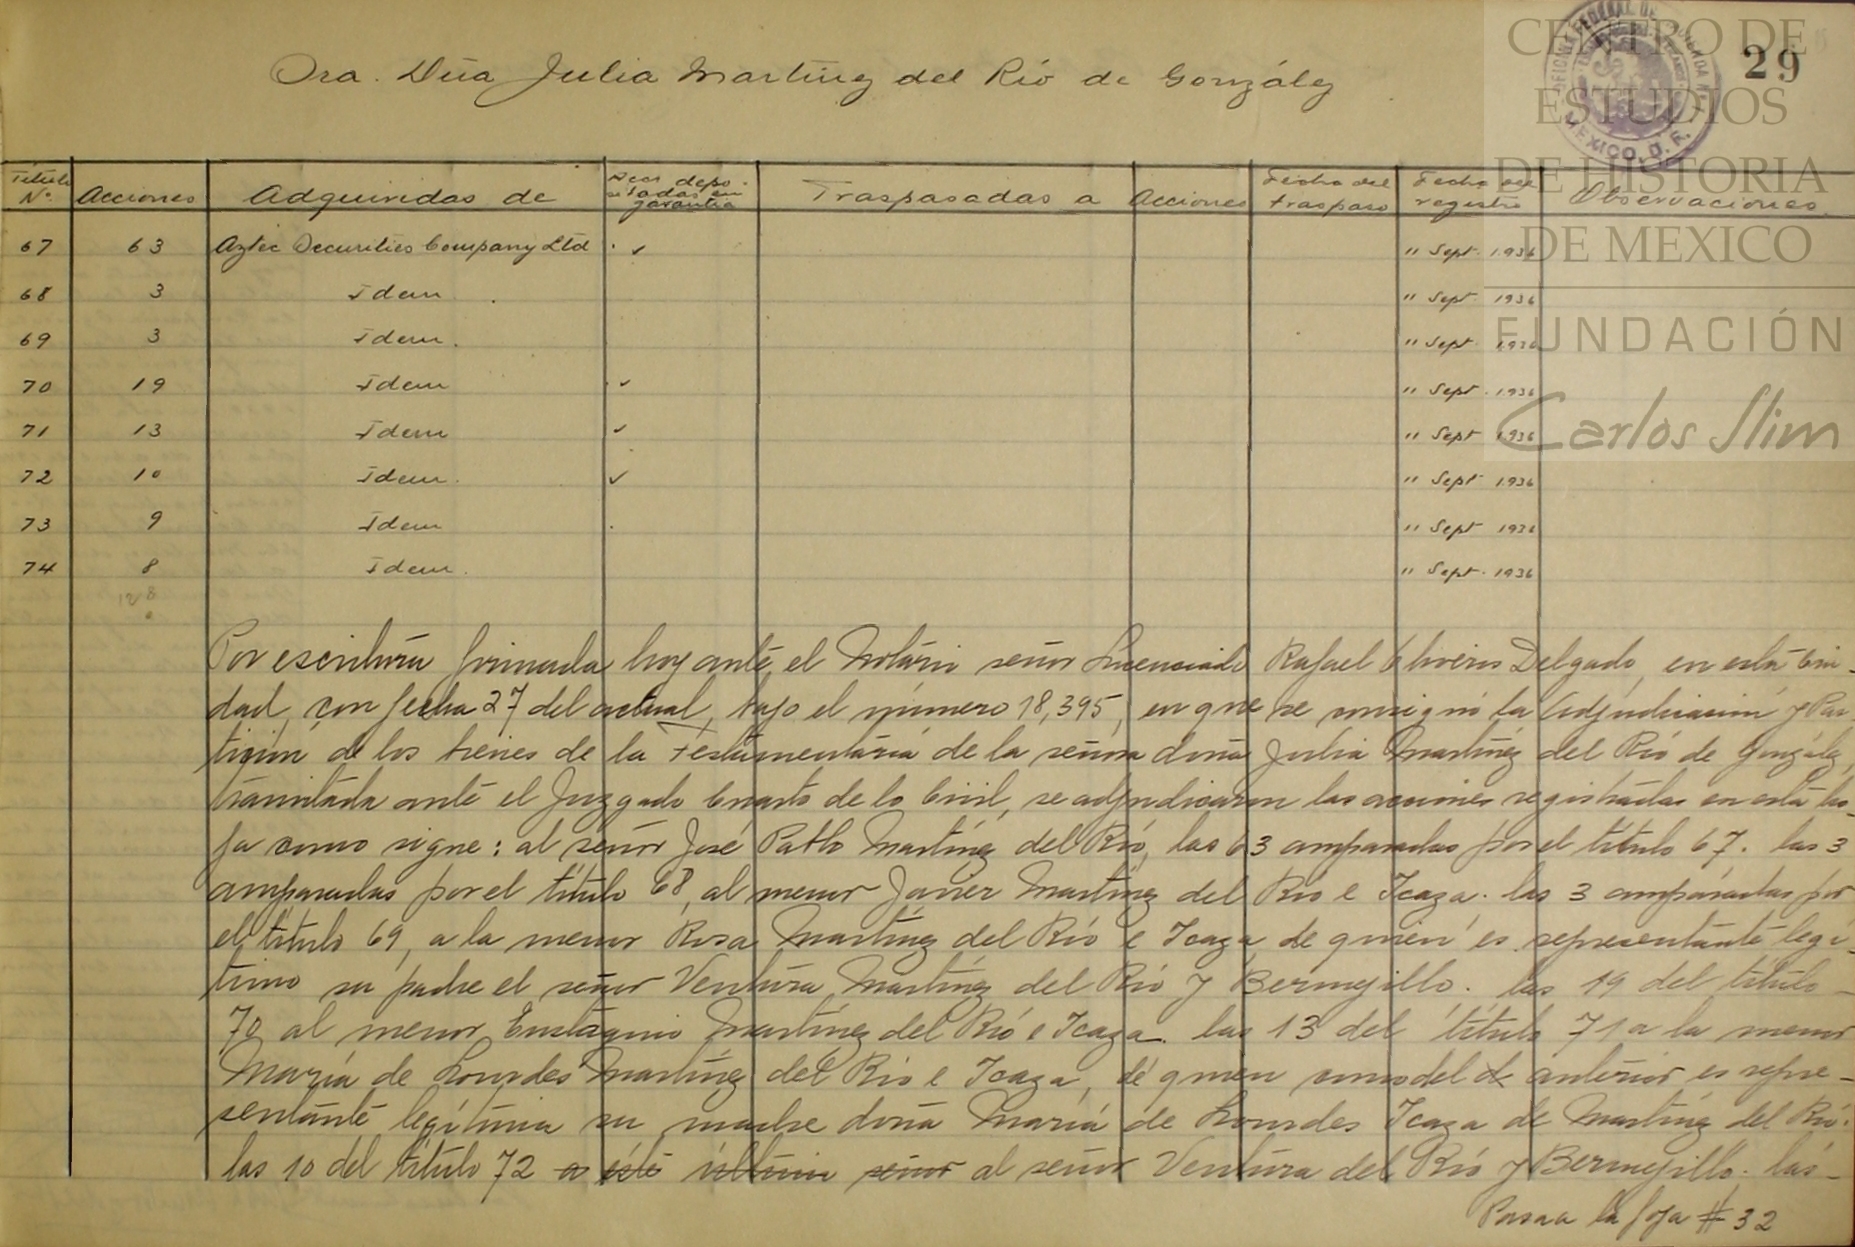 CENTRO DE
ESTUDIOS
DE HISTORIA
DE MEXICO
FUNDACIÓN
Carlos Slim
MEXICO, D. F.
29
Sra. Dña Julia Martínez del Río de González
Título No. Acciones Adquiridas de depositadas en garantía Traspasadas a Acciones Fecha del traspaso Fecha del registro Observaciones
67 63 Aztec Securities Company Ltd ✓ " Sept. 1936
68 3 Idem " Sept. 1936
69 3 Idem. " Sept. 1936
70 19 Idem ✓ " Sept. 1936
71 13 Idem ✓ " Sept 1936
72 10 Idem. ✓ " Sept 1936
73 9 Idem " Sept 1936
74 8 Idem. " Sept. 1936
128
Por escritura firmada hoy ante el Notario señor Licenciado Rafael Oliveros Delgado, en esta Ciu-
dad, con fecha 27 del actual, bajo el número 18,395, en que se consignó la Adjudicación y Par-
tición de los bienes de la Testamentaría de la señora doña Julia Martínez del Río de González,
tramitada ante el Juzgado Cuarto de lo Civil, se adjudicaron las acciones registradas en esta ho-
ja como sigue: al señor José Pablo Martínez del Río, las 63 amparadas por el título 67. las 3
amparadas por el título 68, al menor Javier Martínez del Río e Icaza. las 3 amparadas por
el título 69, a la menor Rosa Martínez del Río e Icaza, de quien es representante legí-
timo su padre el señor Ventura Martínez del Río y Bermejillo. las 19 del título
70 al menor Eustaquio Martínez del Río e Icaza. las 13 del título 71 a la menor
María de Lourdes Martínez del Río e Icaza, de quien como del anterior es repre-
sentante legítima su madre doña María de Lourdes Icaza de Martínez del Río.
las 10 del título 72 a éste último señor al señor Ventura del Río y Bermejillo. las
Pasa a la foja # 32